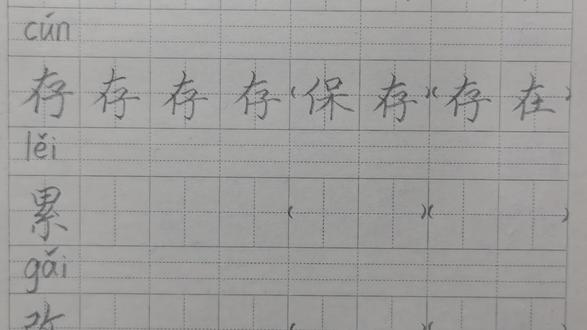 cún
存 存 存 存（保 存）（存 在）
lěi
累 （ ）（ ）
gǎi